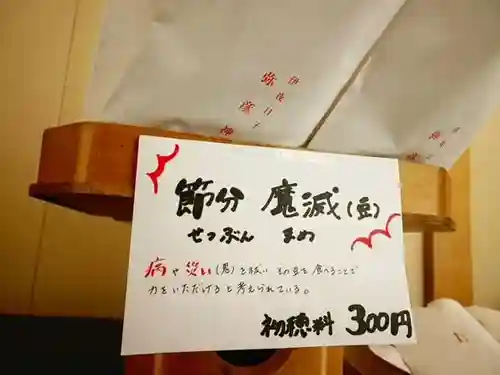 節分 魔滅(豆)
せつぶん まめ
病や災い(魔)を祓い その豆を食べることで
力をいただけると考えられている。
初穂料 300円